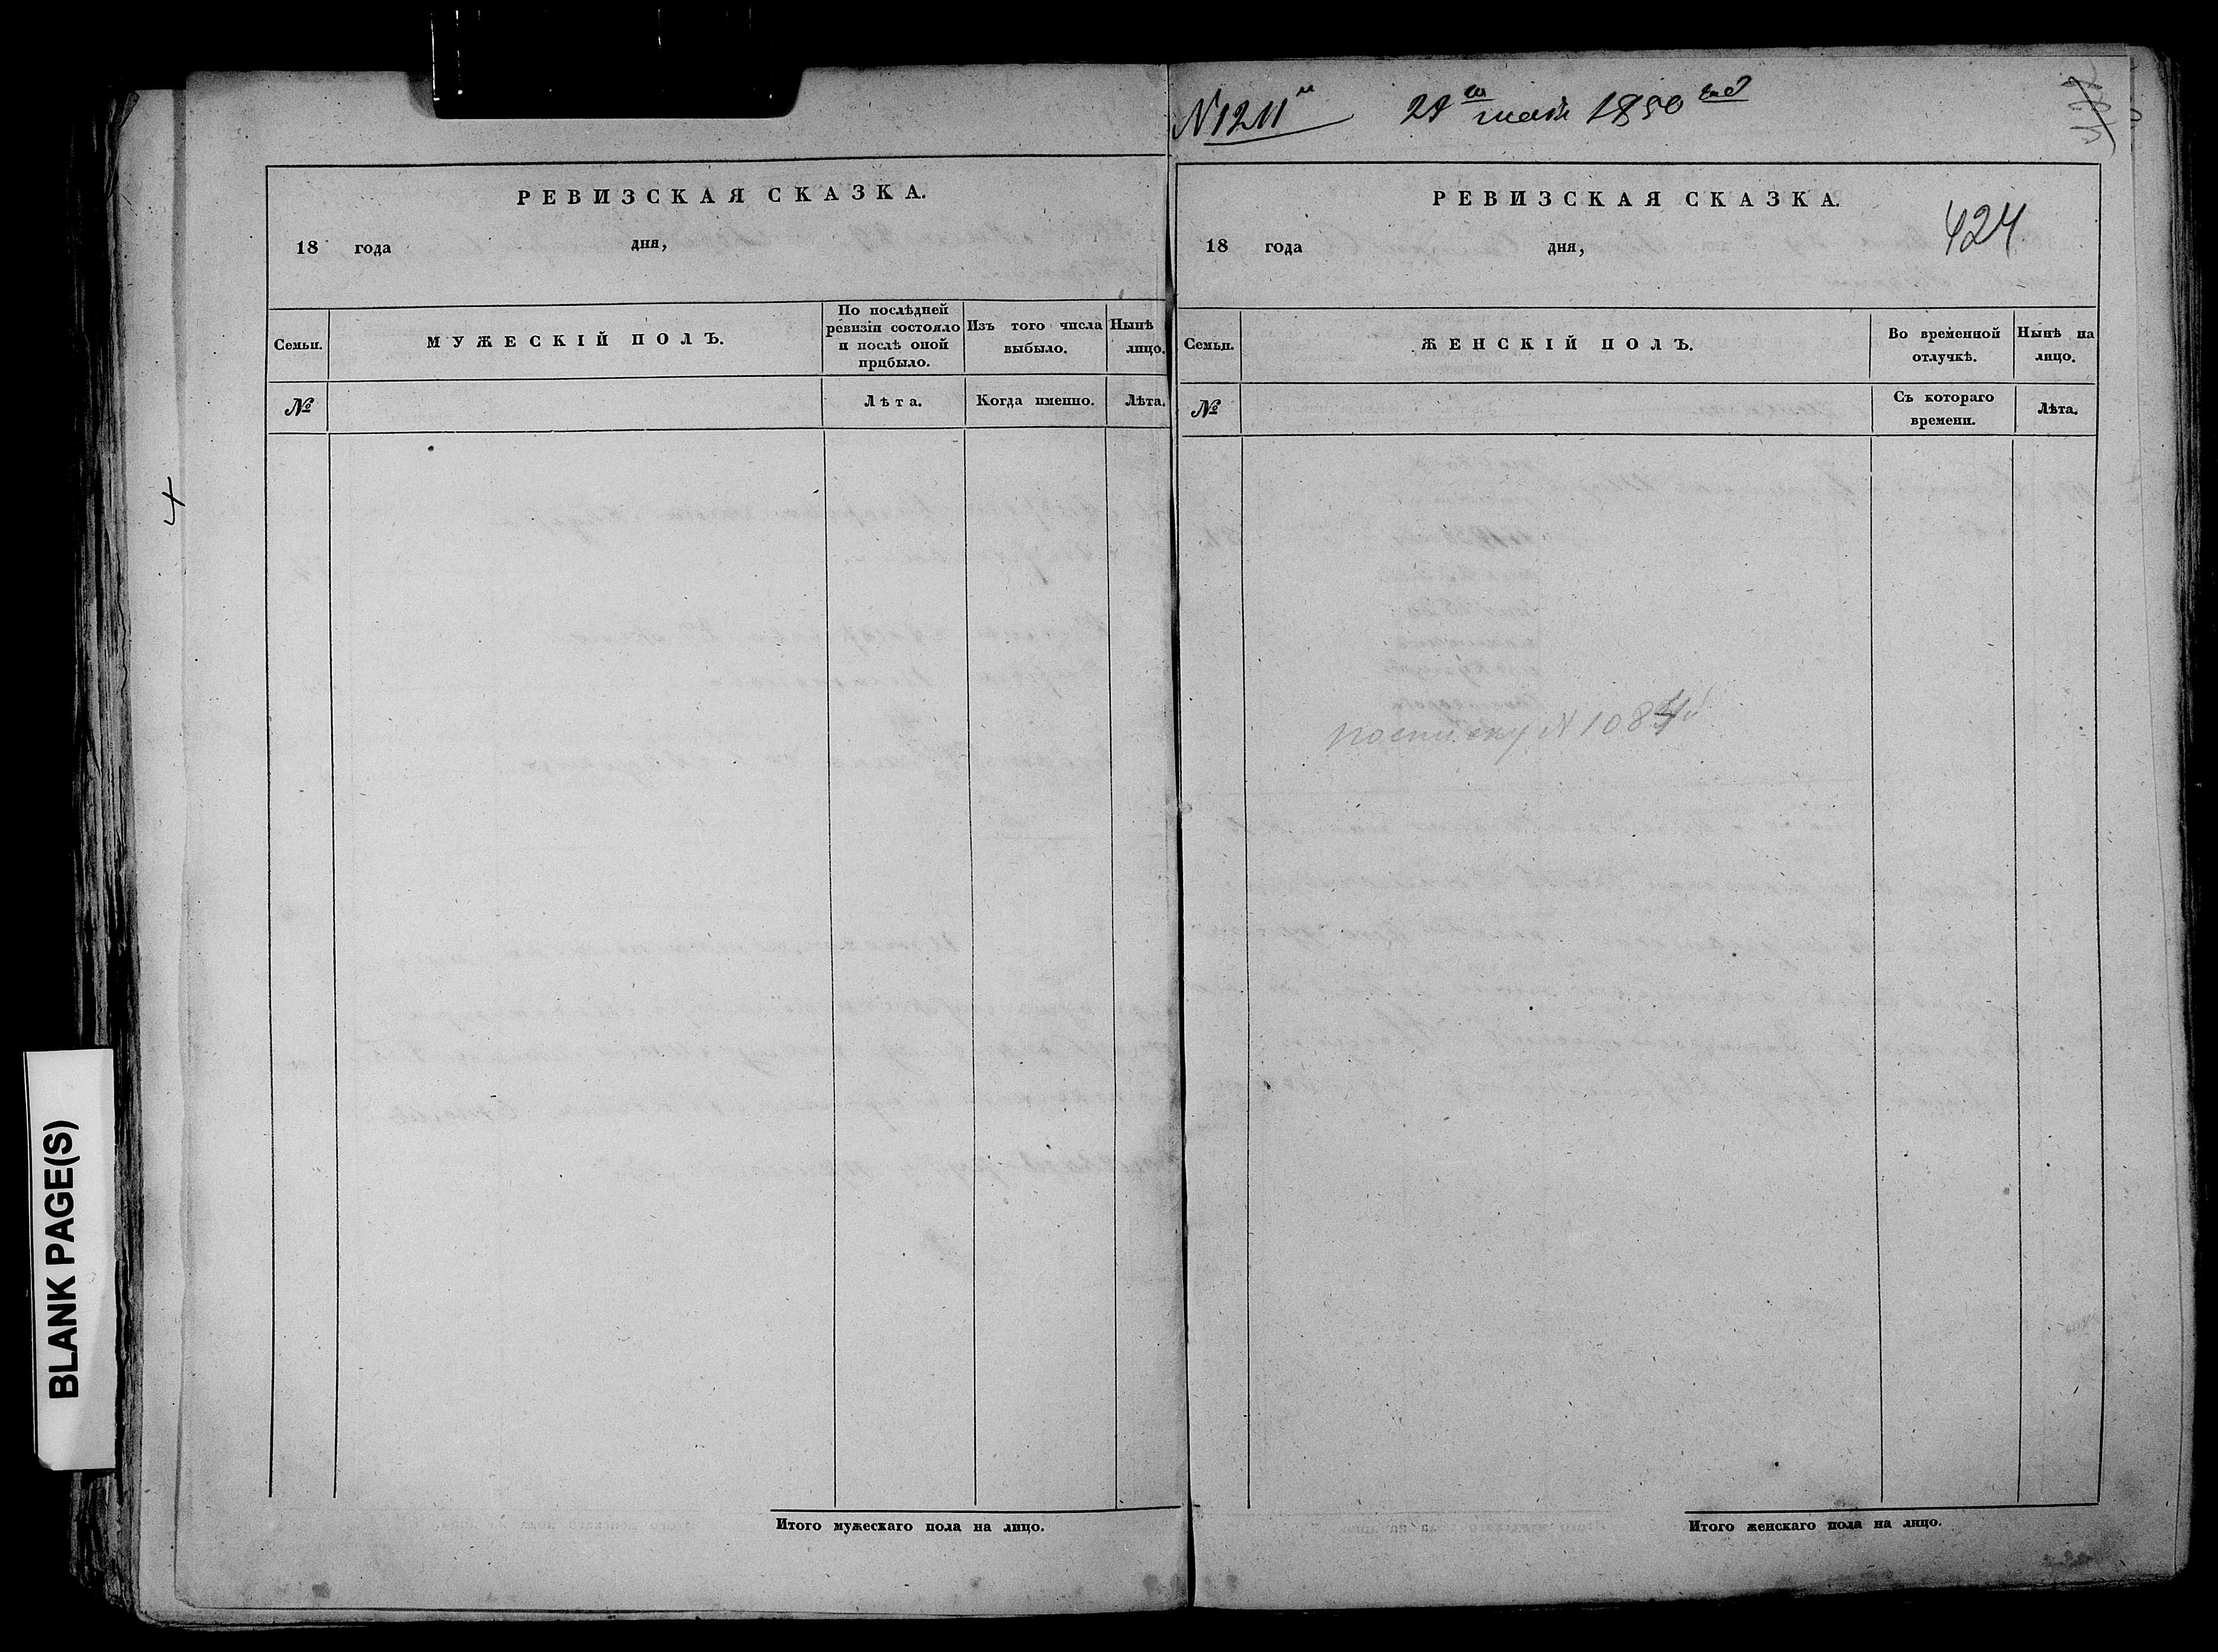 РЕВИЗСКАЯ СКАЗКА.
18 года дня,
Семьи.
МУЖЕСКІЙ ПОЛЪ.
По послѣдней ревизіи состояло и послѣ оной прибыло.
Изъ того числа выбыло.
Нынѣ лицо.
№
Лѣта.
Когда именно.
Лѣта.
Итого мужескаго пола на лицо.
4
BLANK PAGE(S)
N 1211
1850
РЕВИЗСКАЯ СКАЗКА.
424
18 года дня,
Семьи.
ЖЕНСКІЙ ПОЛЪ.
Во временной отлучкѣ.
Нынѣ на лицо.
№
Съ котораго времени.
Лѣта.
по списку N
Итого женскаго пола на лицо.